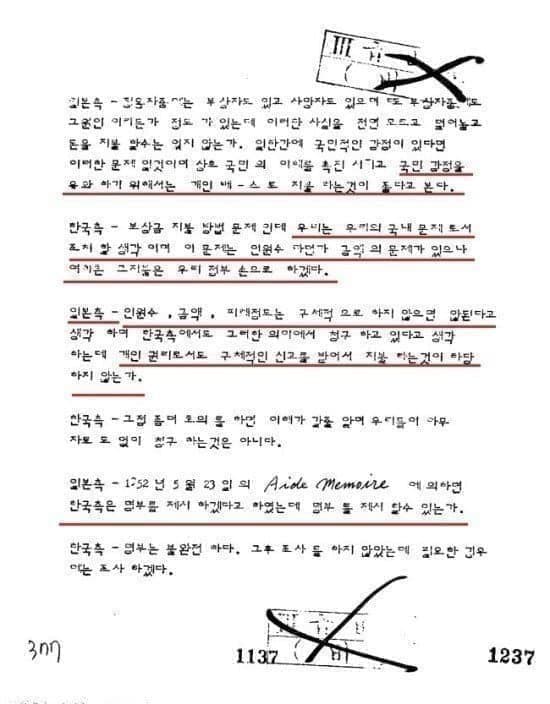 III
일본측 - 징용자중에는 부상자도 있고 사망자도 있으며 또 부상자중에도
그원인 이라든가 정도 가 있는데 이러한 사실을 전연 모르고 덮어놓고
돈을 지불 할수는 없지 않는가. 일한간에 국민적인 감정이 있다면
이러한 문제 일것이며 상호 국민 의 이해를 촉진 시키고 국민 감정을
유화 하기 위해서는 개인 베-스로 지불 하는것이 좋다고 본다.
한국측 - 보상금 지불 방법 문제 인데 우리는 우리의 국내 문제 로서
조처 할 생각 이며 이 문제는 인원수 라던가 금액 의 문제가 있으나
여하튼 그지불은 우리 정부 손으로 하겠다.
일본측 - 인원수 , 금액 , 피해정도는 구체적 으로 하지 않으면 않된다고
생각 하며 한국측에서도 그러한 의미에서 청구 하고 있다고 생각
하는데 개인 권리로서도 구체적인 신고를 받어서 지불 하는것이 타당
하지 않는가.
한국측 - 그점 좀더 토의 를 하면 이해가 갈줄 알며 우리들이 아무
자료 도 없이 청구 하는것은 아니다.
일본측 - 1952 년 5 월 23 일 의 Aide Memoire 에 의하면
한국측은 명부를 제시 하겠다고 하였는데 명부 를 제시 할수 있는가.
한국측 - 명부는 불완전 하다. 그후 조사 를 하지 않았는데 필요한 경우
에는 조사 하겠다.
377
1137
1237